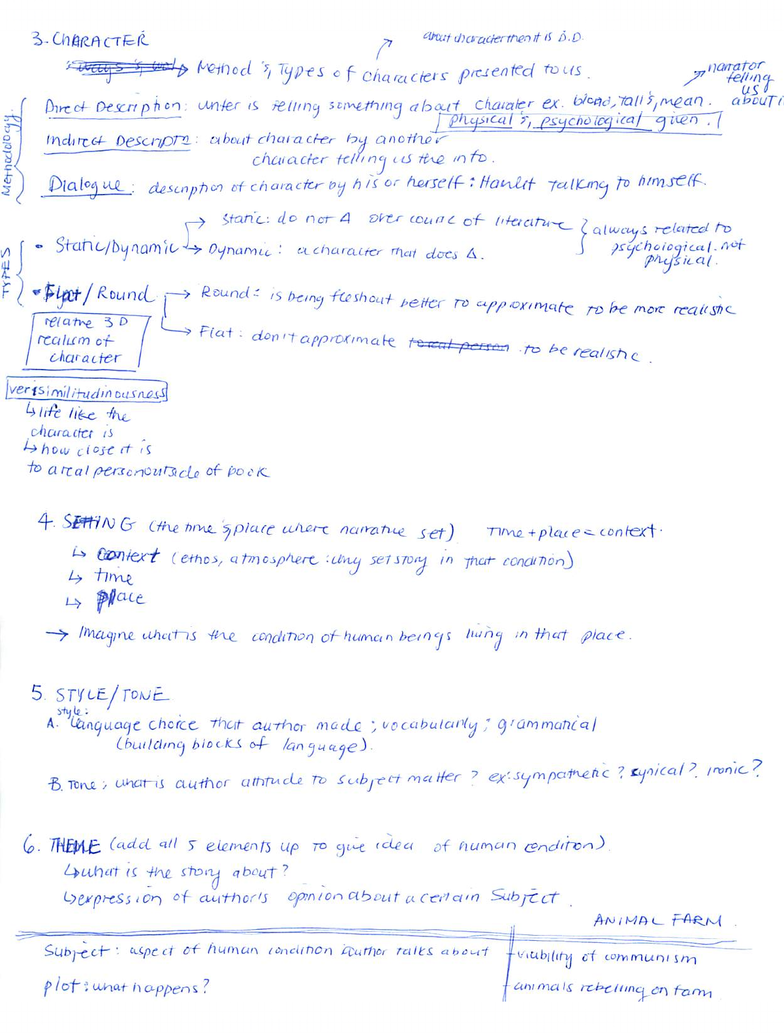 3. CHARACTER
about character then it is D.D.
Method & Types of characters presented to us.
narrator telling us about it
Methodology
Direct Description: writer is telling something about charater ex. blond, tall & mean.
physical & psychological given.
Indirect Descriptn: about character by another
character telling us the info.
Dialogue: description of character by his or herself: Hamlet talking to himself.
TYPES
• Static/Dynamic
→ Static: do not Δ over course of literature
→ Dynamic: a character that does Δ.
always related to
psychological. not
physical.
• Flat / Round
→ Round: is being fleshout better to approximate to be more realistic
→ Flat: don't approximate to real person to be realistic.
relative 3D
realism of
character
verisimilitudinousness
↳ life like the
character is
↳ how close it is
to a real person outside of book
4. SETTING (the time & place where narrative set) Time + place = context.
↳ context (ethos, atmosphere: why set story in that condition)
↳ time
↳ place
→ Imagine what is the condition of human beings living in that place.
5. STYLE/TONE
style:
A. language choice that author made; vocabularly; grammatical
(building blocks of language).
B. Tone: what is author attitude to subject matter? ex: sympathetic? cynical? ironic?
6. THEME (add all 5 elements up to give idea of human condition)
↳ what is the story about?
↳ expression of author's opinion about a certain Subject.
ANIMAL FARM.
Subject: aspect of human condition author talks about
viability of communism
plot: what happens?
animals rebelling on farm